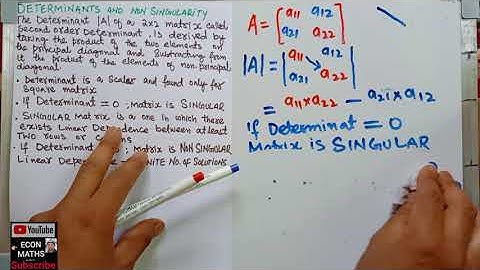 DETERMINANTS AND NON SINGULARITY
The Determinant |A| of a 2x2 matrix called
Second order Determinant, is derived by
taking the product of the two elements on
the principal diagonal and subtracting from
it the product of the elements of non principal
diagonal
. Determinant is a scalar and found only for
square matrix
. If Determinant = 0 ; Matrix is SINGULAR
. SINGULAR Matrix is a one in which there
exists Linear Dependence between at least
TWO rows
. If Determinant ; Matrix is NON SINGULAR
Linear No. of Solutions.
A = [a11 a12
a21 a22]
|A| = |a11 a12
a21 a22|
= a11 x a22 - a21 x a12
If Determinat = 0
Matrix is SINGULAR
YouTube
ECON
MATHS
Subscribe